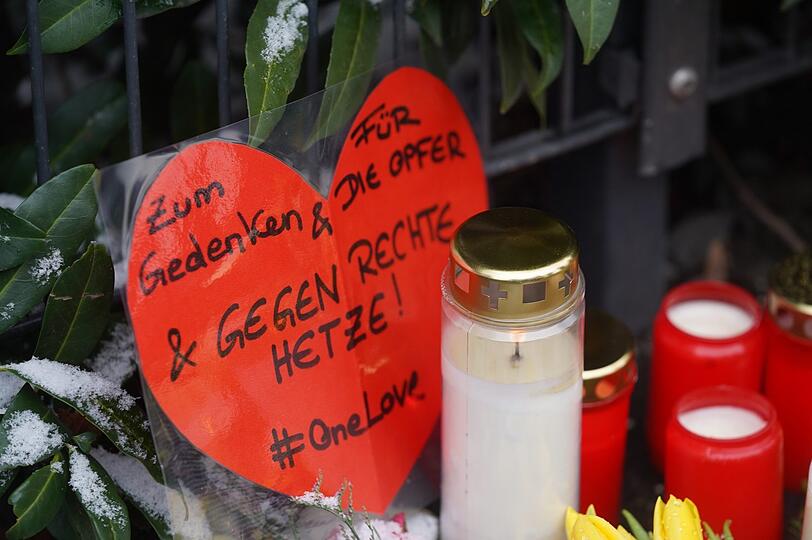 Zum FÜR
Gedenken & DIE OPFER
& GEGEN RECHTE
HETZE!
#OneLove